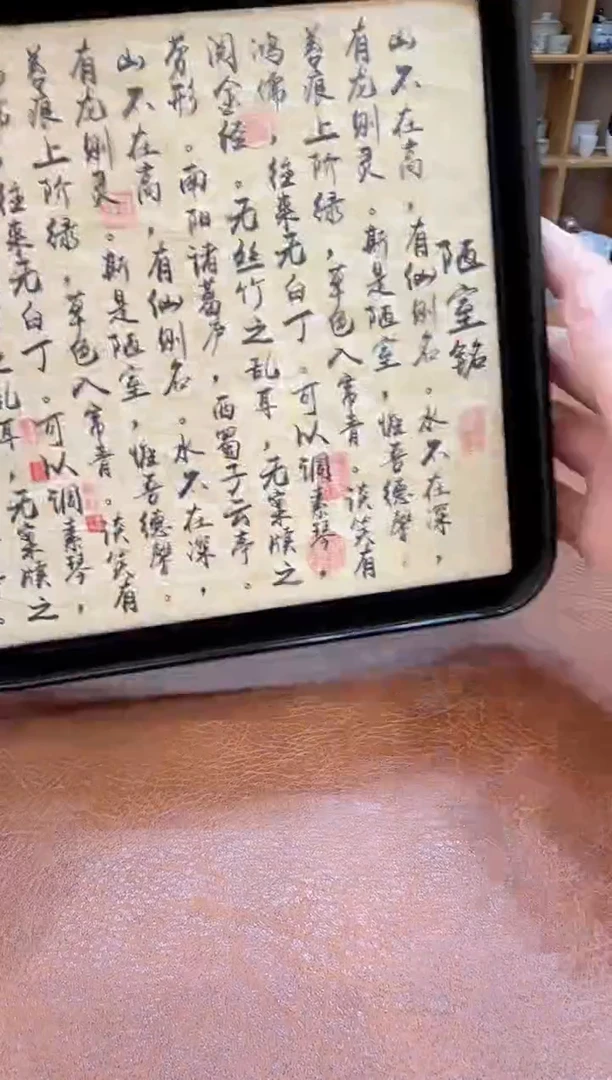 陋室铭
山不在高，有仙则名。水不在深，
有龙则灵。斯是陋室，惟吾德馨。
苔痕上阶绿，草色入帘青。谈笑有
鸿儒，往来无白丁。可以调素琴，
阅金经。无丝竹之乱耳，无案牍之
劳形。南阳诸葛庐，西蜀子云亭。
山不在高，有仙则名。水不在深，
有龙则灵。斯是陋室，惟吾德馨。
苔痕上阶绿，草色入帘青。谈笑有
，往来无白丁。可以调素琴，
乱耳，无案牍之